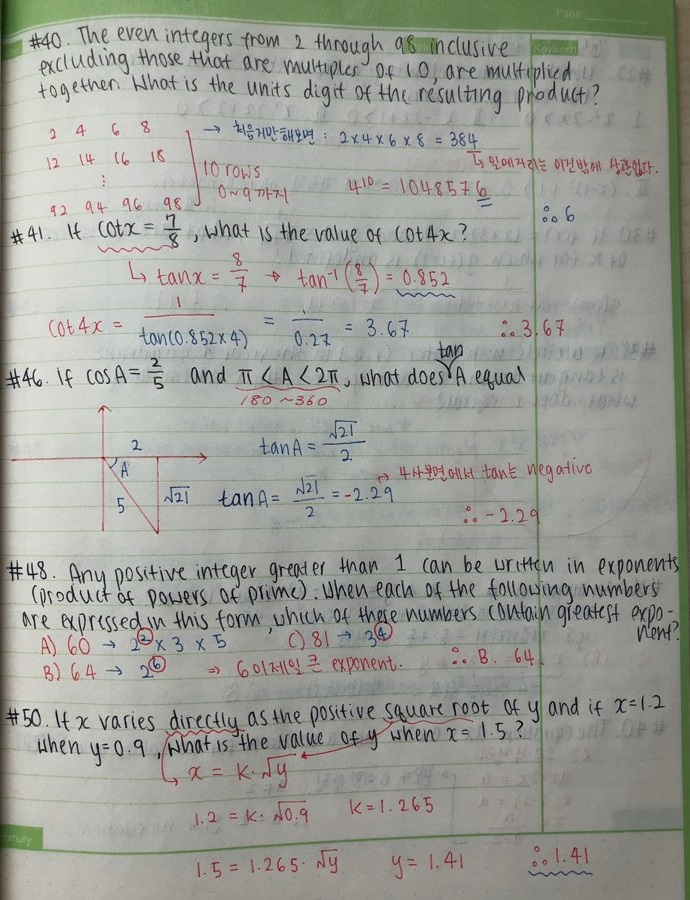 Page
#40. The even integers from 2 through 98 inclusive
excluding those that are multiples of 10, are multiplied
together. What is the units digit of the resulting product?
2 4 6 8
→ 처음거만 해보면 : 2×4×6×8 = 384
↳ 일에자리는 이건밖에 상관없다.
12 14 16 18
⋮
92 94 96 98
10 rows
0~9까지
4¹⁰ = 1048576
∴ 6
#41. If cotx = 7/8, what is the value of cot4x?
↳ tanx = 8/7 → tan⁻¹(8/7) = 0.852
cot4x = 1/tan(0.852×4) = 1/0.27 = 3.67 ∴ 3.67
#46. If cosA = 2/5 and π < A < 2π, what does tan A equal
180 ~360
2
A
5
√21
tanA = √21/2
tanA = √21/2 = -2.29
↦ 4사분면에서 tan는 negative
∴ -2.29
#48. Any positive integer greater than 1 can be written in exponents
(product of powers of prime). When each of the following numbers
are expressed in this form, which of these numbers contain greatest expo-
nent?
A) 60 → 2² × 3 × 5 C) 81 → 3⁴
B) 64 → 2⁶ ⇒ 6이 제일 큰 exponent. ∴ B. 64.
#50. If x varies directly as the positive square root of y and if x=1.2
when y=0.9, what is the value of y when x= 1.5?
↳ x = k·√y
1.2 = k·√0.9 k=1.265
1.5 = 1.265·√y y = 1.41 ∴ 1.41